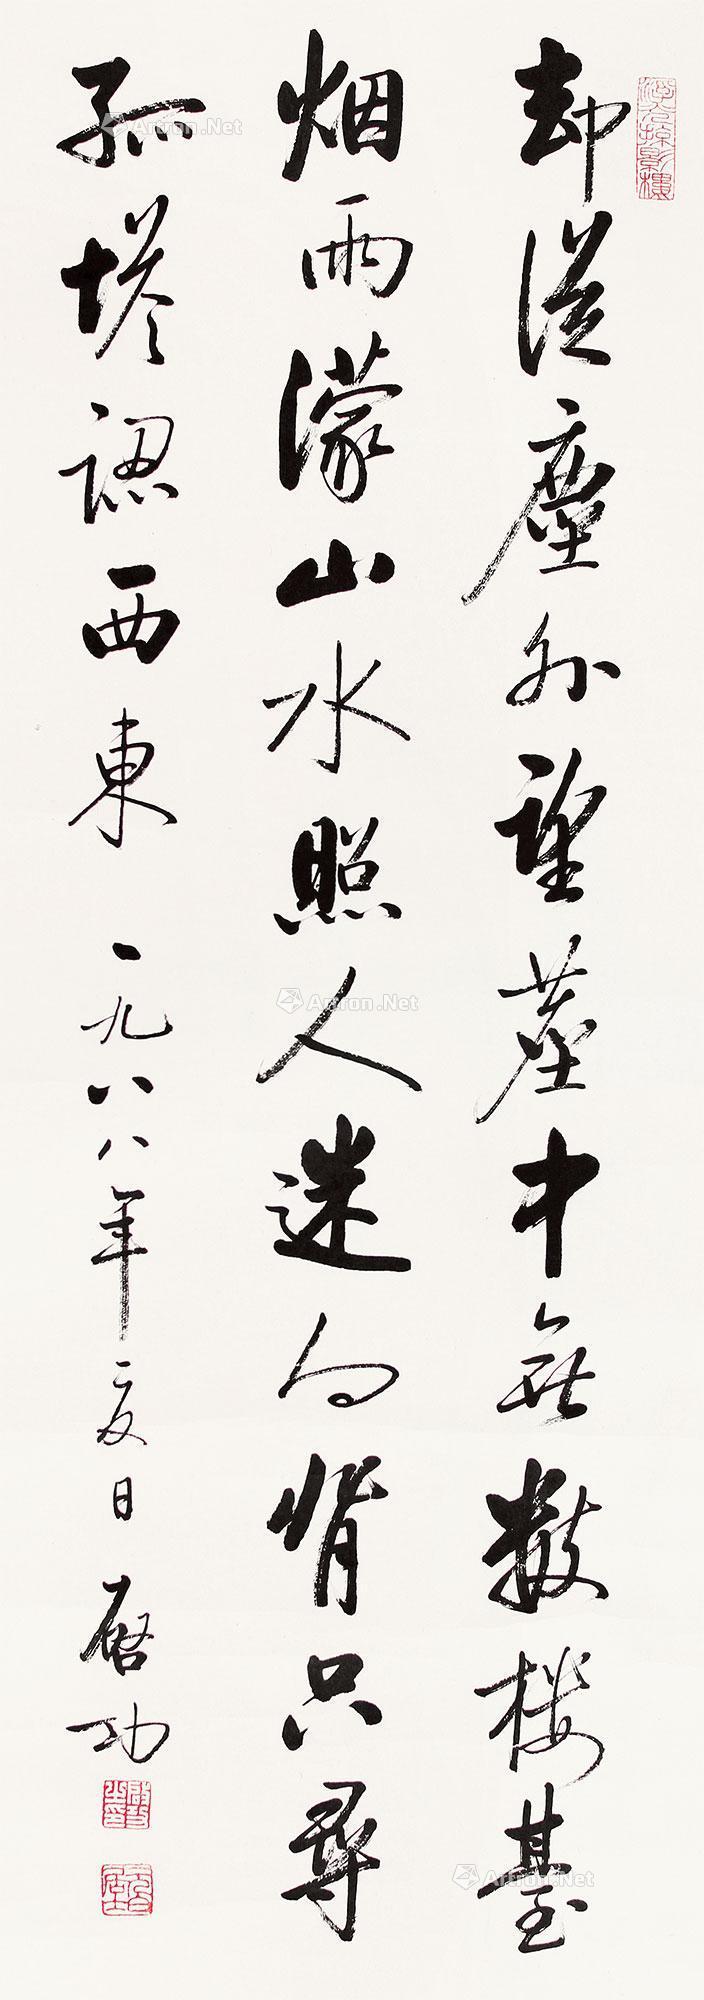 却從塵外望塵中無數樓臺
烟雨濛山水照人迷向背只尋
孤塔認西東 一九八八年夏日 啓功
Artron.Net
Artron.Net
Artron.Net